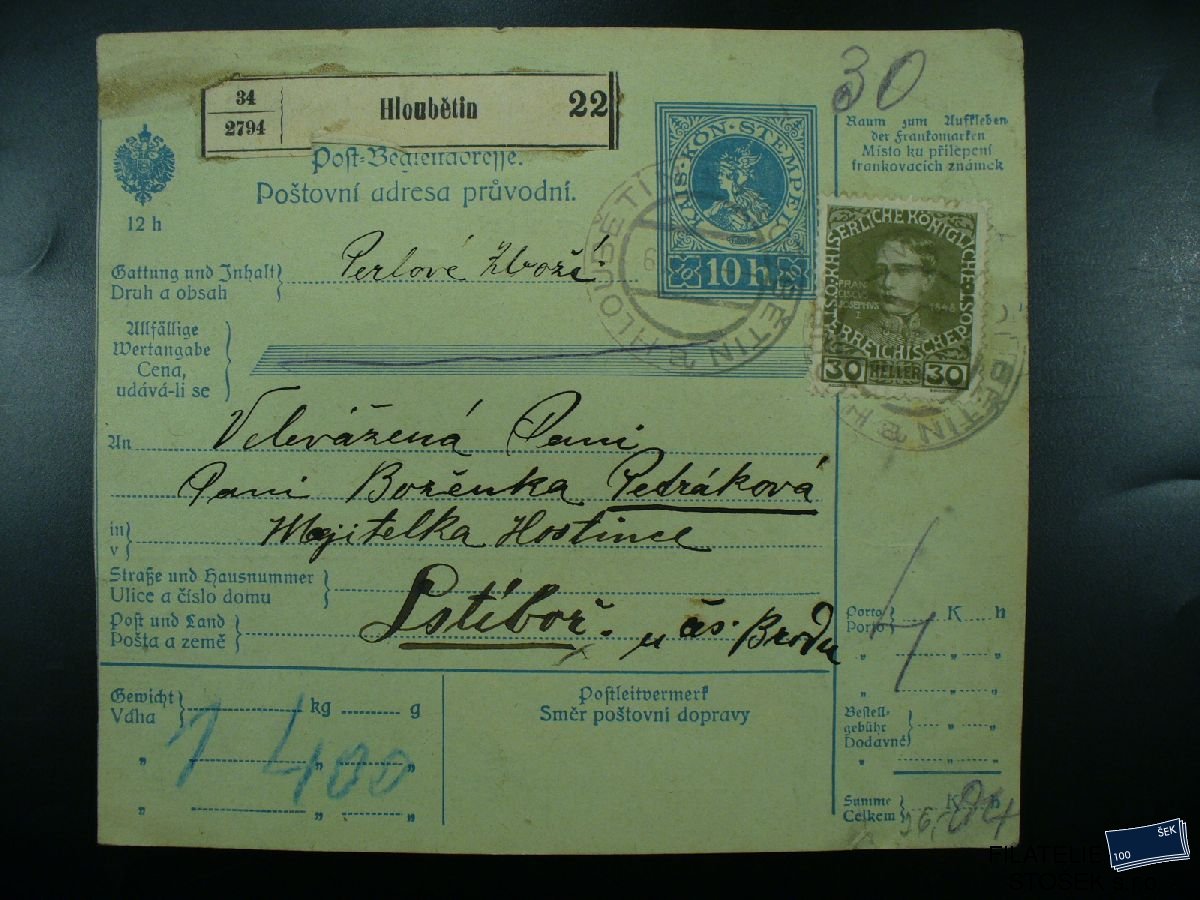 30
34
2794
Hloubětin
22
Post-Begleitadresse.
Poštovní adresa průvodní.
12 h
KAIS·KÖN·STEMPEL
10 h
Raum zum Aufkleben
der Frankomarken
Místo ku přilepení
frankovacích známek
KAISERLICHE KÖNIGLICHE
ÖSTERREICHISCHE POST
FRAN
JOSEPHUS
I
1848
30 HELLER 30
HLOUBĚTIN
Gattung und Inhalt
Druh a obsah
Perlové Zboží
Allfällige
Wertangabe
Cena,
udává-li se
An
Velevážená Paní
Paní Boženka Pedráková
in
v
Majitelka Hostince
Straße und Hausnummer
Ulice a číslo domu
Post und Land
Pošta a země
Lstiboř. u čs. Brodu
Gewicht
Váha
kg
g
1 400
Postleitvermerk
Směr poštovní dopravy
Porto
Porto
K h
Bestell-
gebühr
Dodavné
Summe
Celkem
K h
FILATELIE
STOSEK s.r.o.
100
ŠEK